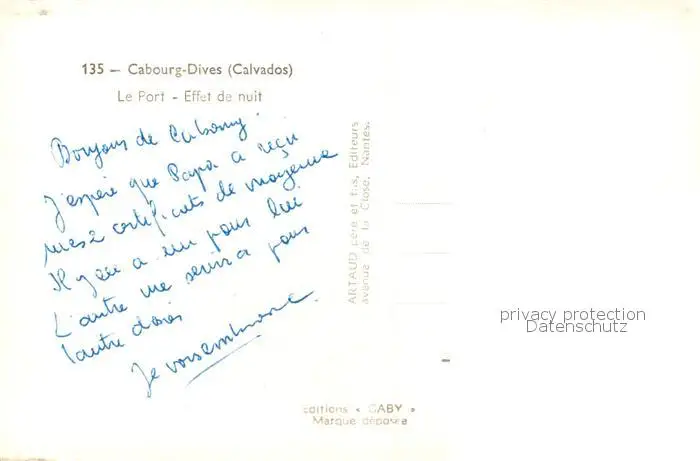 135 — Cabourg-Dives (Calvados)
Le Port - Effet de nuit
Bonjour de Cabourg.
J'espère que Papa a reçu
mes 2 certificats de moyenne
Il y en a un pour lui
L'autre me servira pour
l'autre
Je vous embrasse
ARTAUD père et fils, Editeurs
avenue de la Close, Nantes.
Editions « GABY »
Marque déposée
privacy protection
Datenschutz